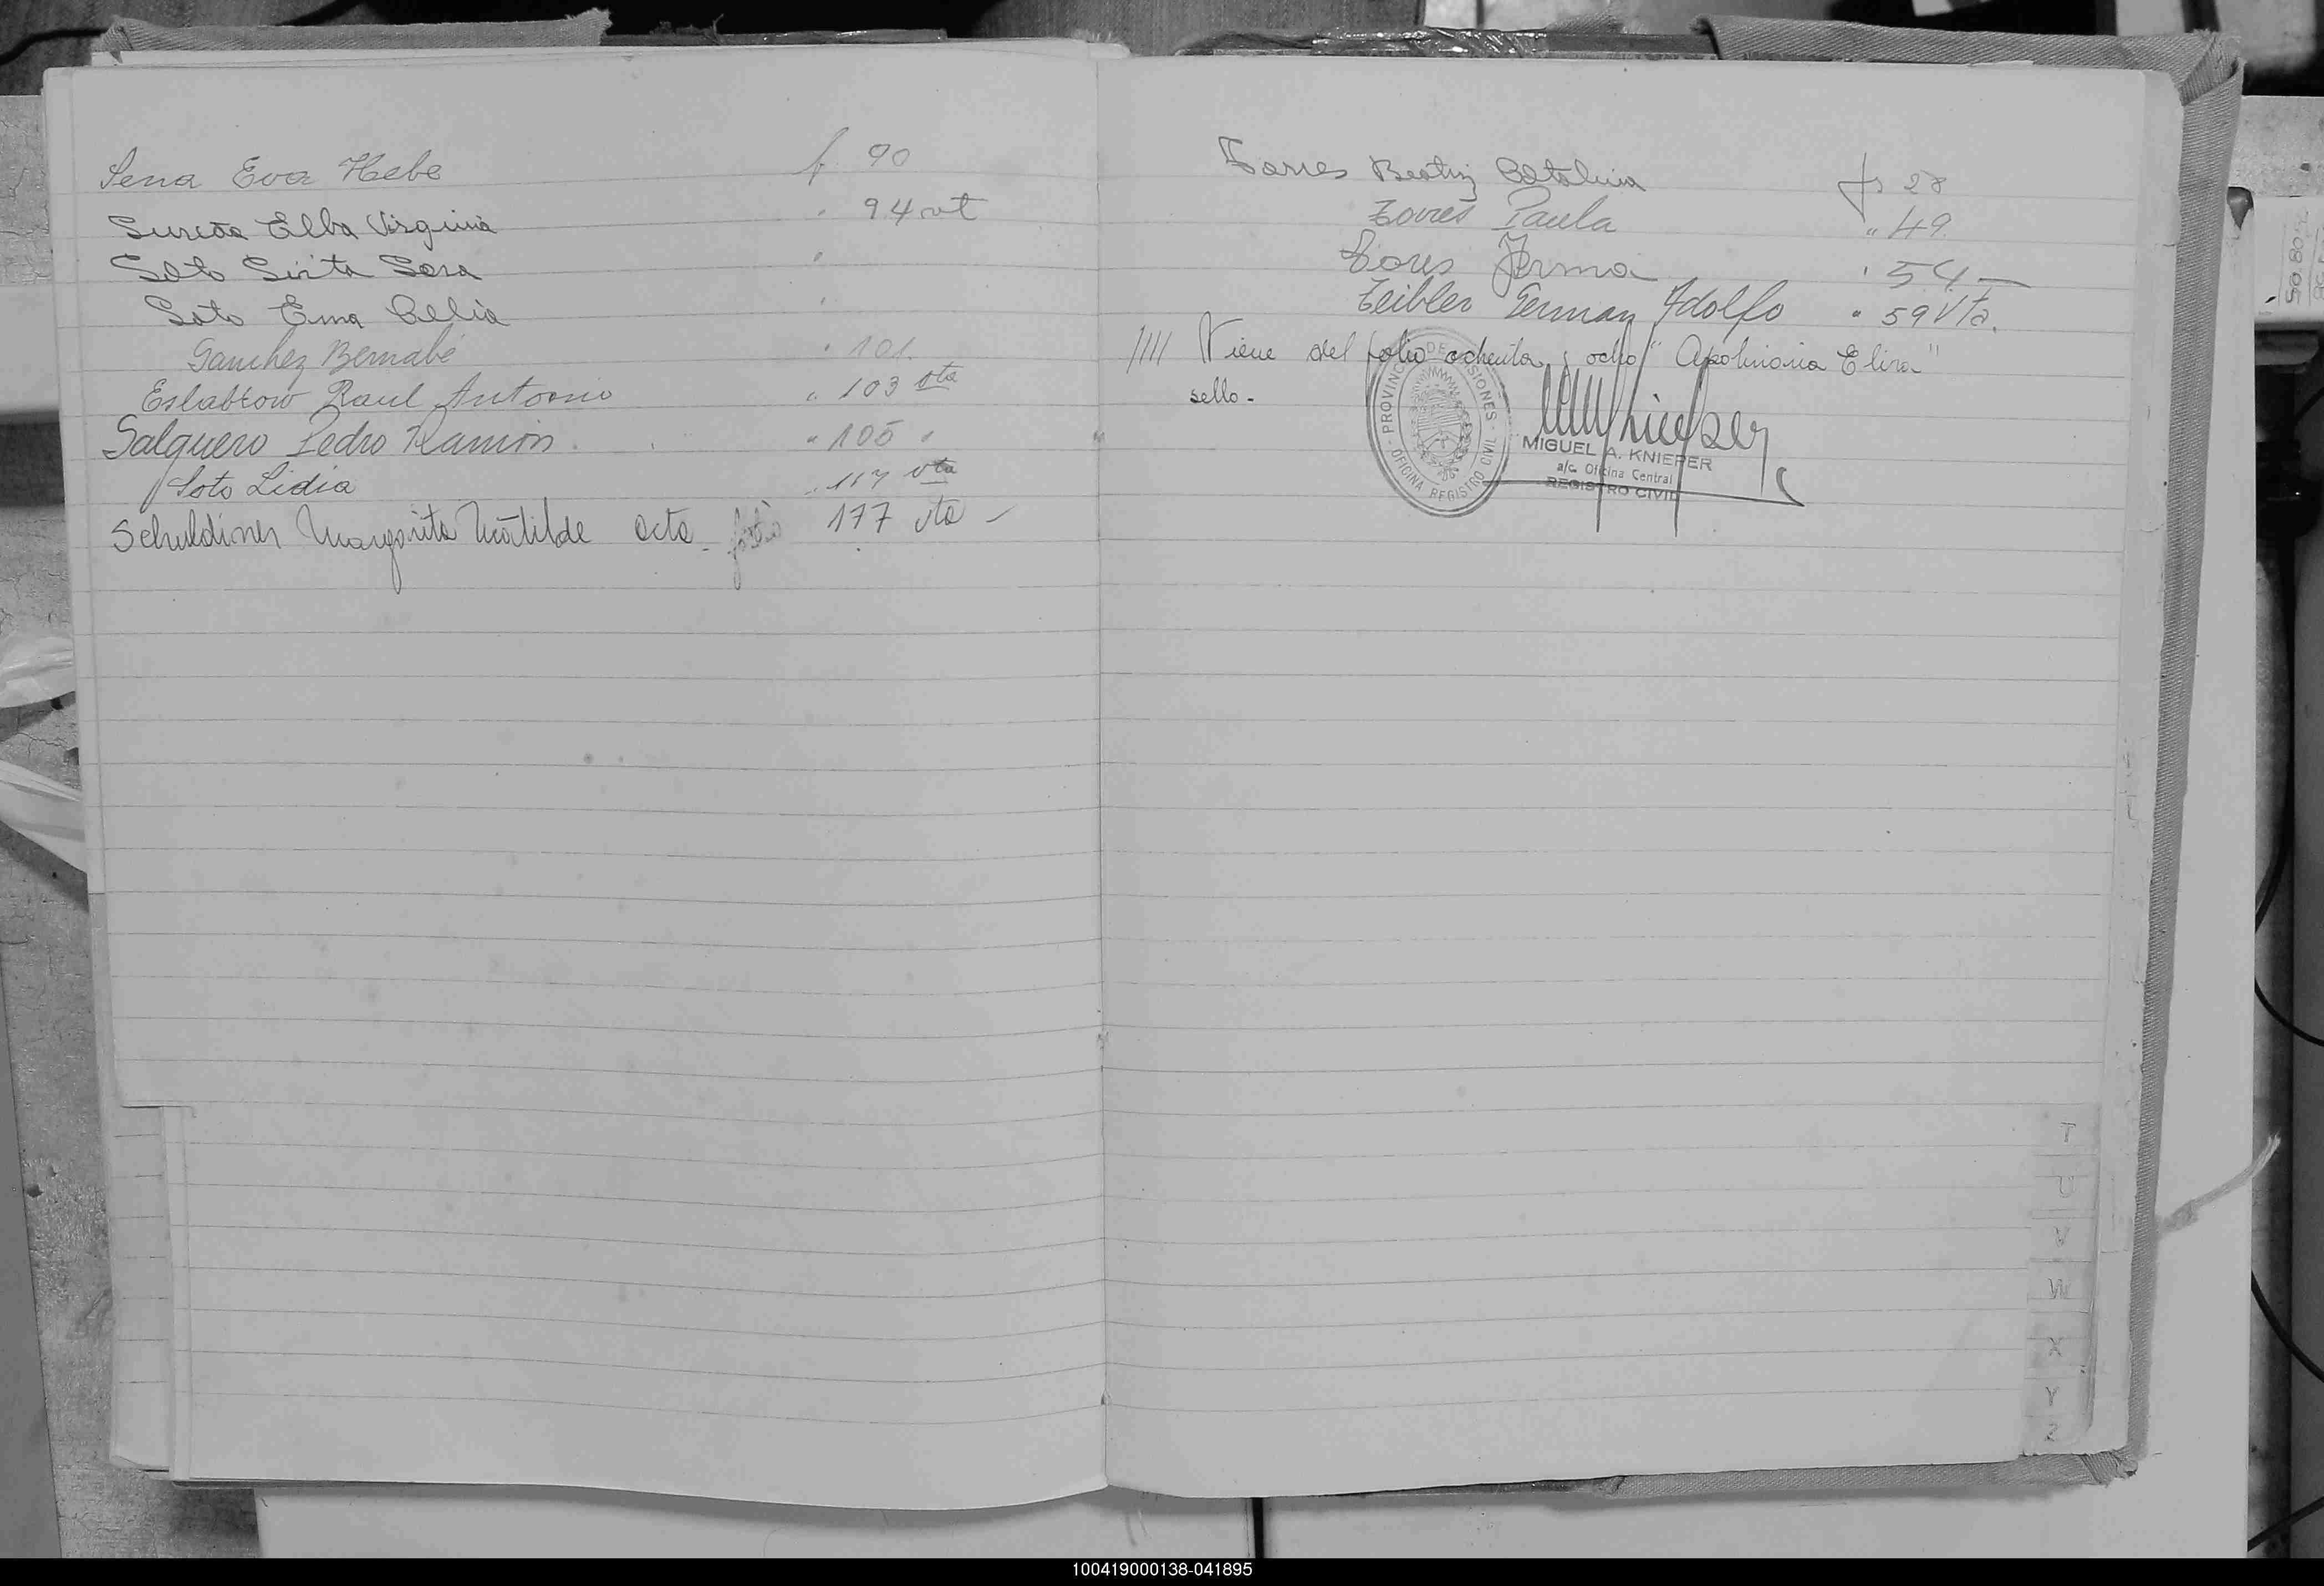 Sena Eva Hebe f. 90
Elba Virginia " 94 vt
Soto Sirita Sara "
Soto Ema Celia "
Sanchez Bernabé " 101.
Eslabtow Raul Antonio " 103 vta
Salguero Pedro Ramón " 105 "
Soto Lidia " 117 vta
Schuldiner Margarita Matilde acta - folio 177 vta -
Torres Beatriz Catalina fs 28
Torres Paula " 49.
Torres Irma " 54 -
Zeibler German Adolfo " 59 Vta.
//// Viene del folio ochenta y ocho " Apolinaria Elira "
sello -
PROVINCIA DE MISIONES
OFICINA REGISTRO CIVIL
MIGUEL A. KNIEPER
a/c. Oficina Central
REGISTRO CIVIL
T
U
V
W
X
Y
Z
100419000138-041895